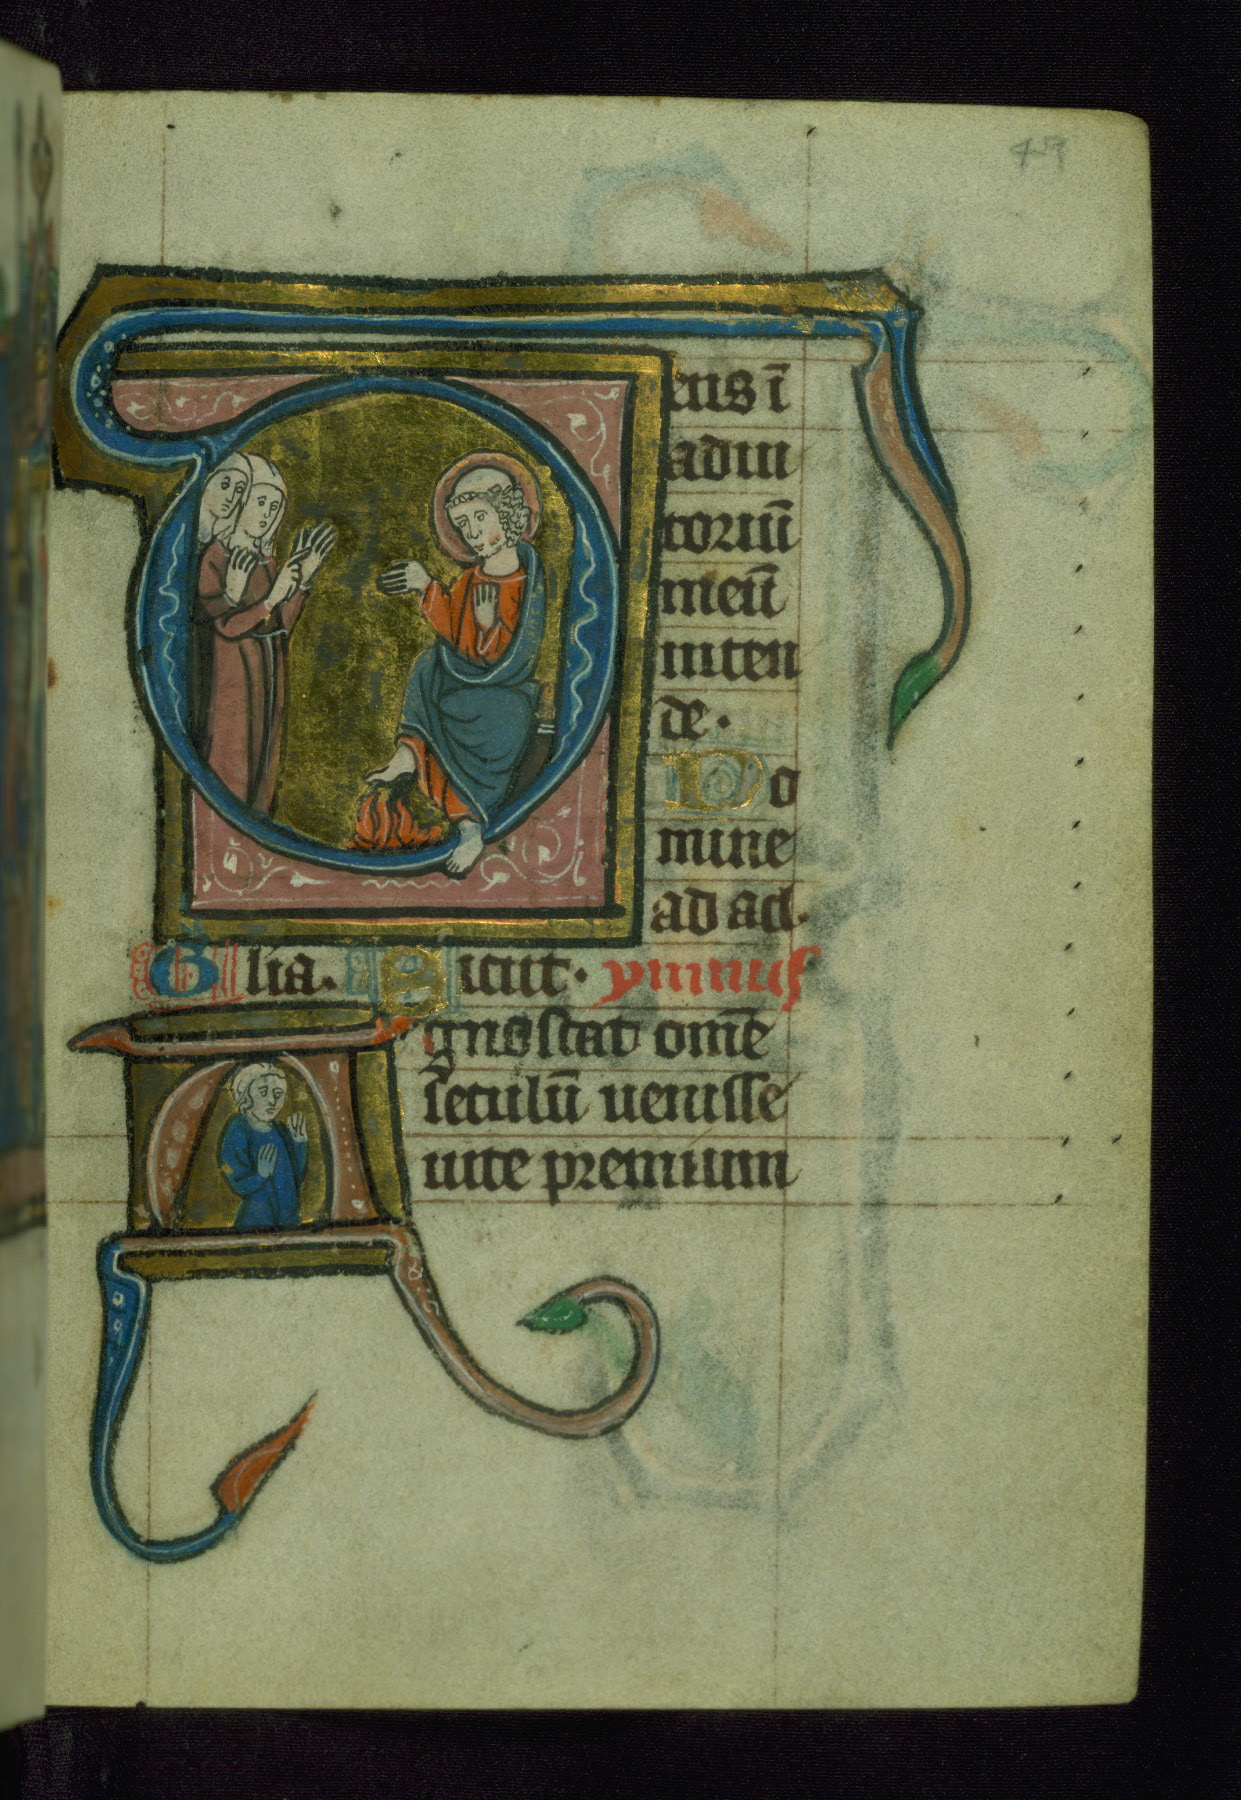 49
Deus ī
adiu
toriū
meū
inten
de.
Do
mine
ad ad.
Glia. Sicut. ymnus
Agnoscat om̄e
seculū uenisse
uite premium